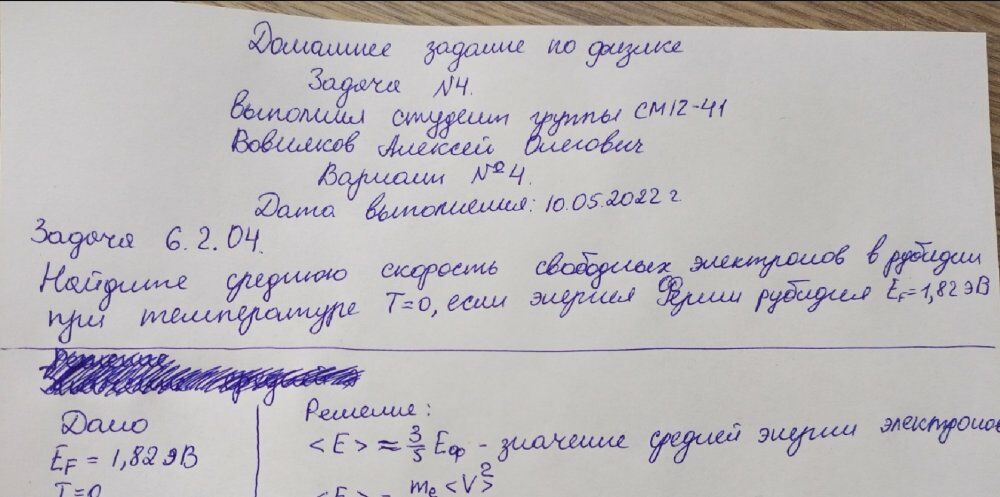 Домашнее задание по физике
Задача №4.
Выполнил студент группы СМ12-41
Вовиляков Алексей Олегович
Вариант №4.
Дата выполнения: 10.05.2022 г
Задача 6.2.04.
Найдите среднюю скорость свободных электронов в рубидии
при температуре T=0, если энергия Ферми рубидия E_F=1,82 эВ
Решение
Дано
E_F = 1,82 эВ
T=0
Решение:
<E> ≈ 3/5 E_ф - значение средней энергии электронов
<E> = m_e <V>^2